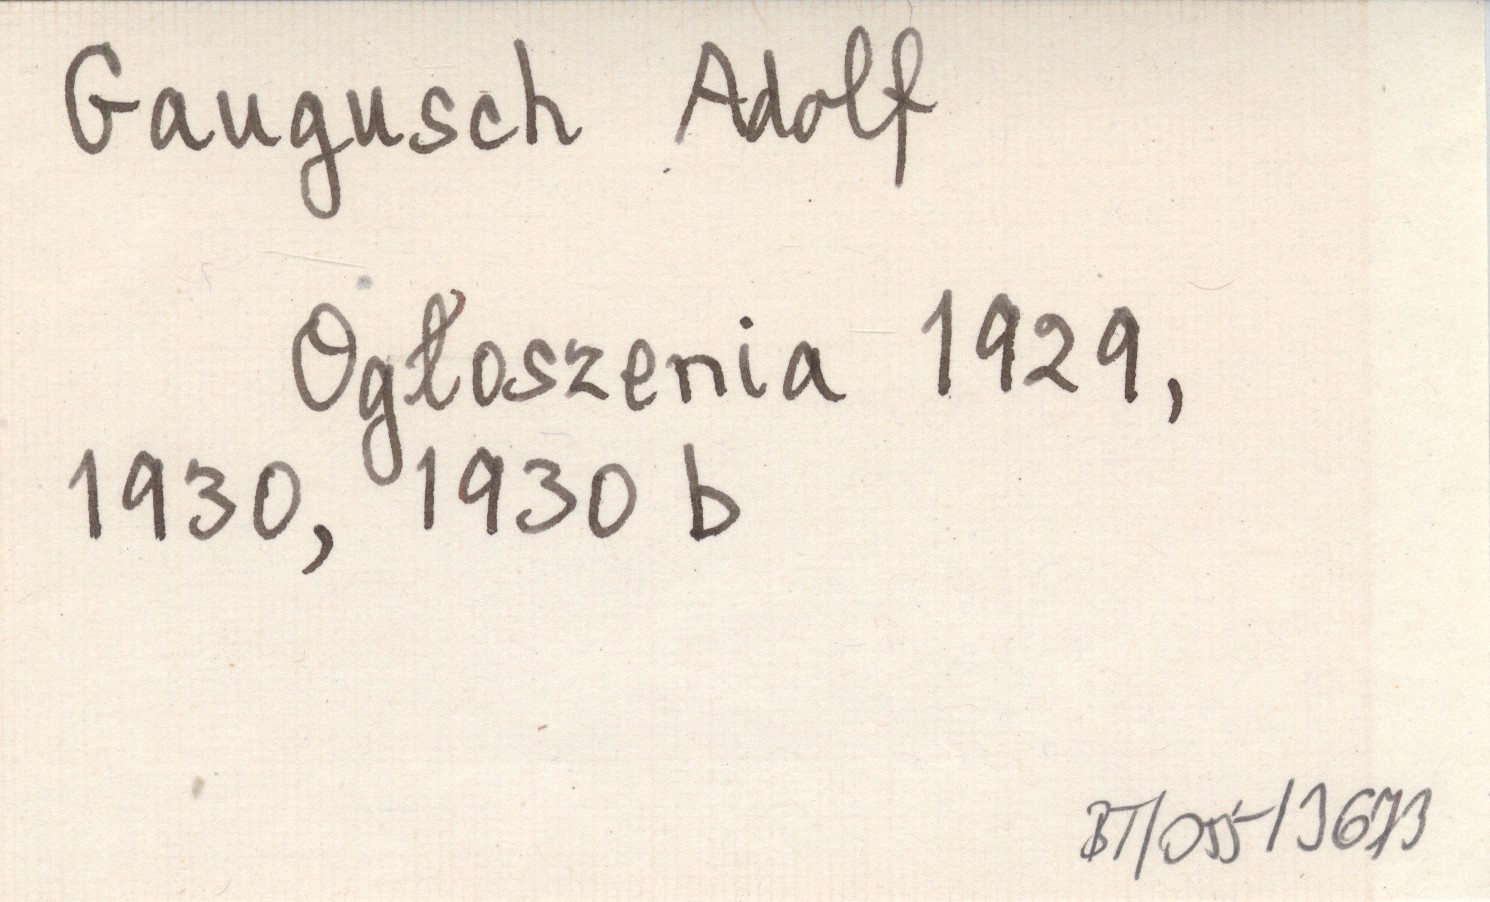 Gaugusch Adolf
Ogłoszenia 1929,
1930, 1930 b
BT/055/3673